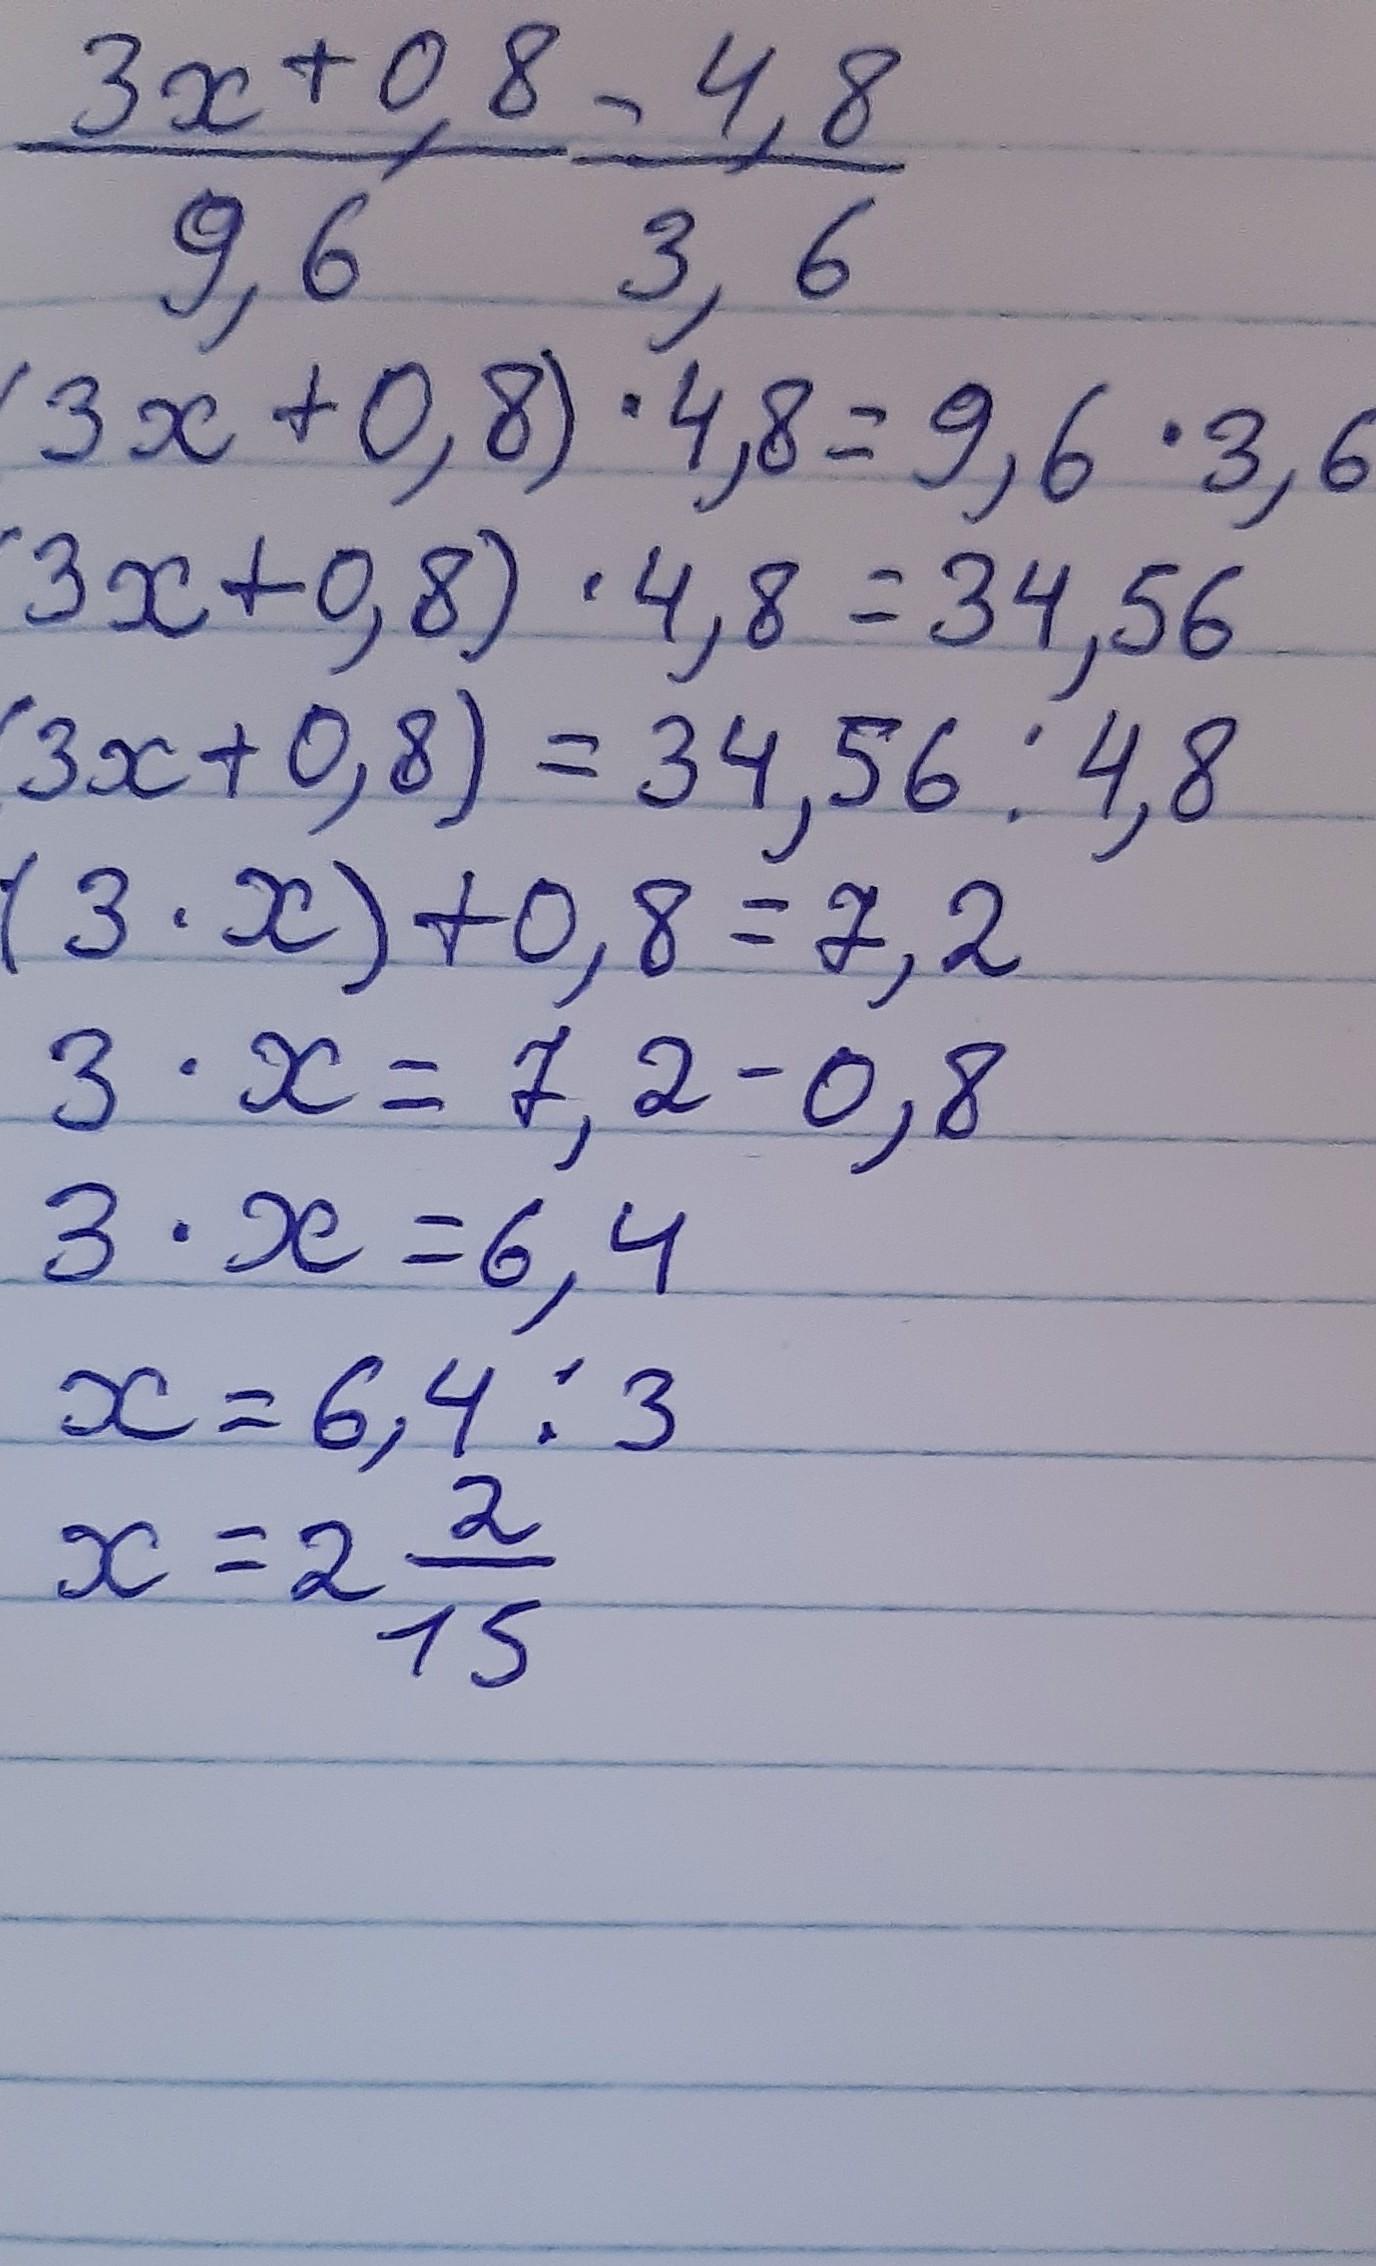 3x+0,8 - 4,8
9,6 3,6
(3x+0,8)·4,8=9,6·3,6
(3x+0,8)·4,8=34,56
(3x+0,8)=34,56:4,8
(3·x)+0,8=7,2
3·x=7,2-0,8
3·x=6,4
x=6,4:3
x=2 2/15